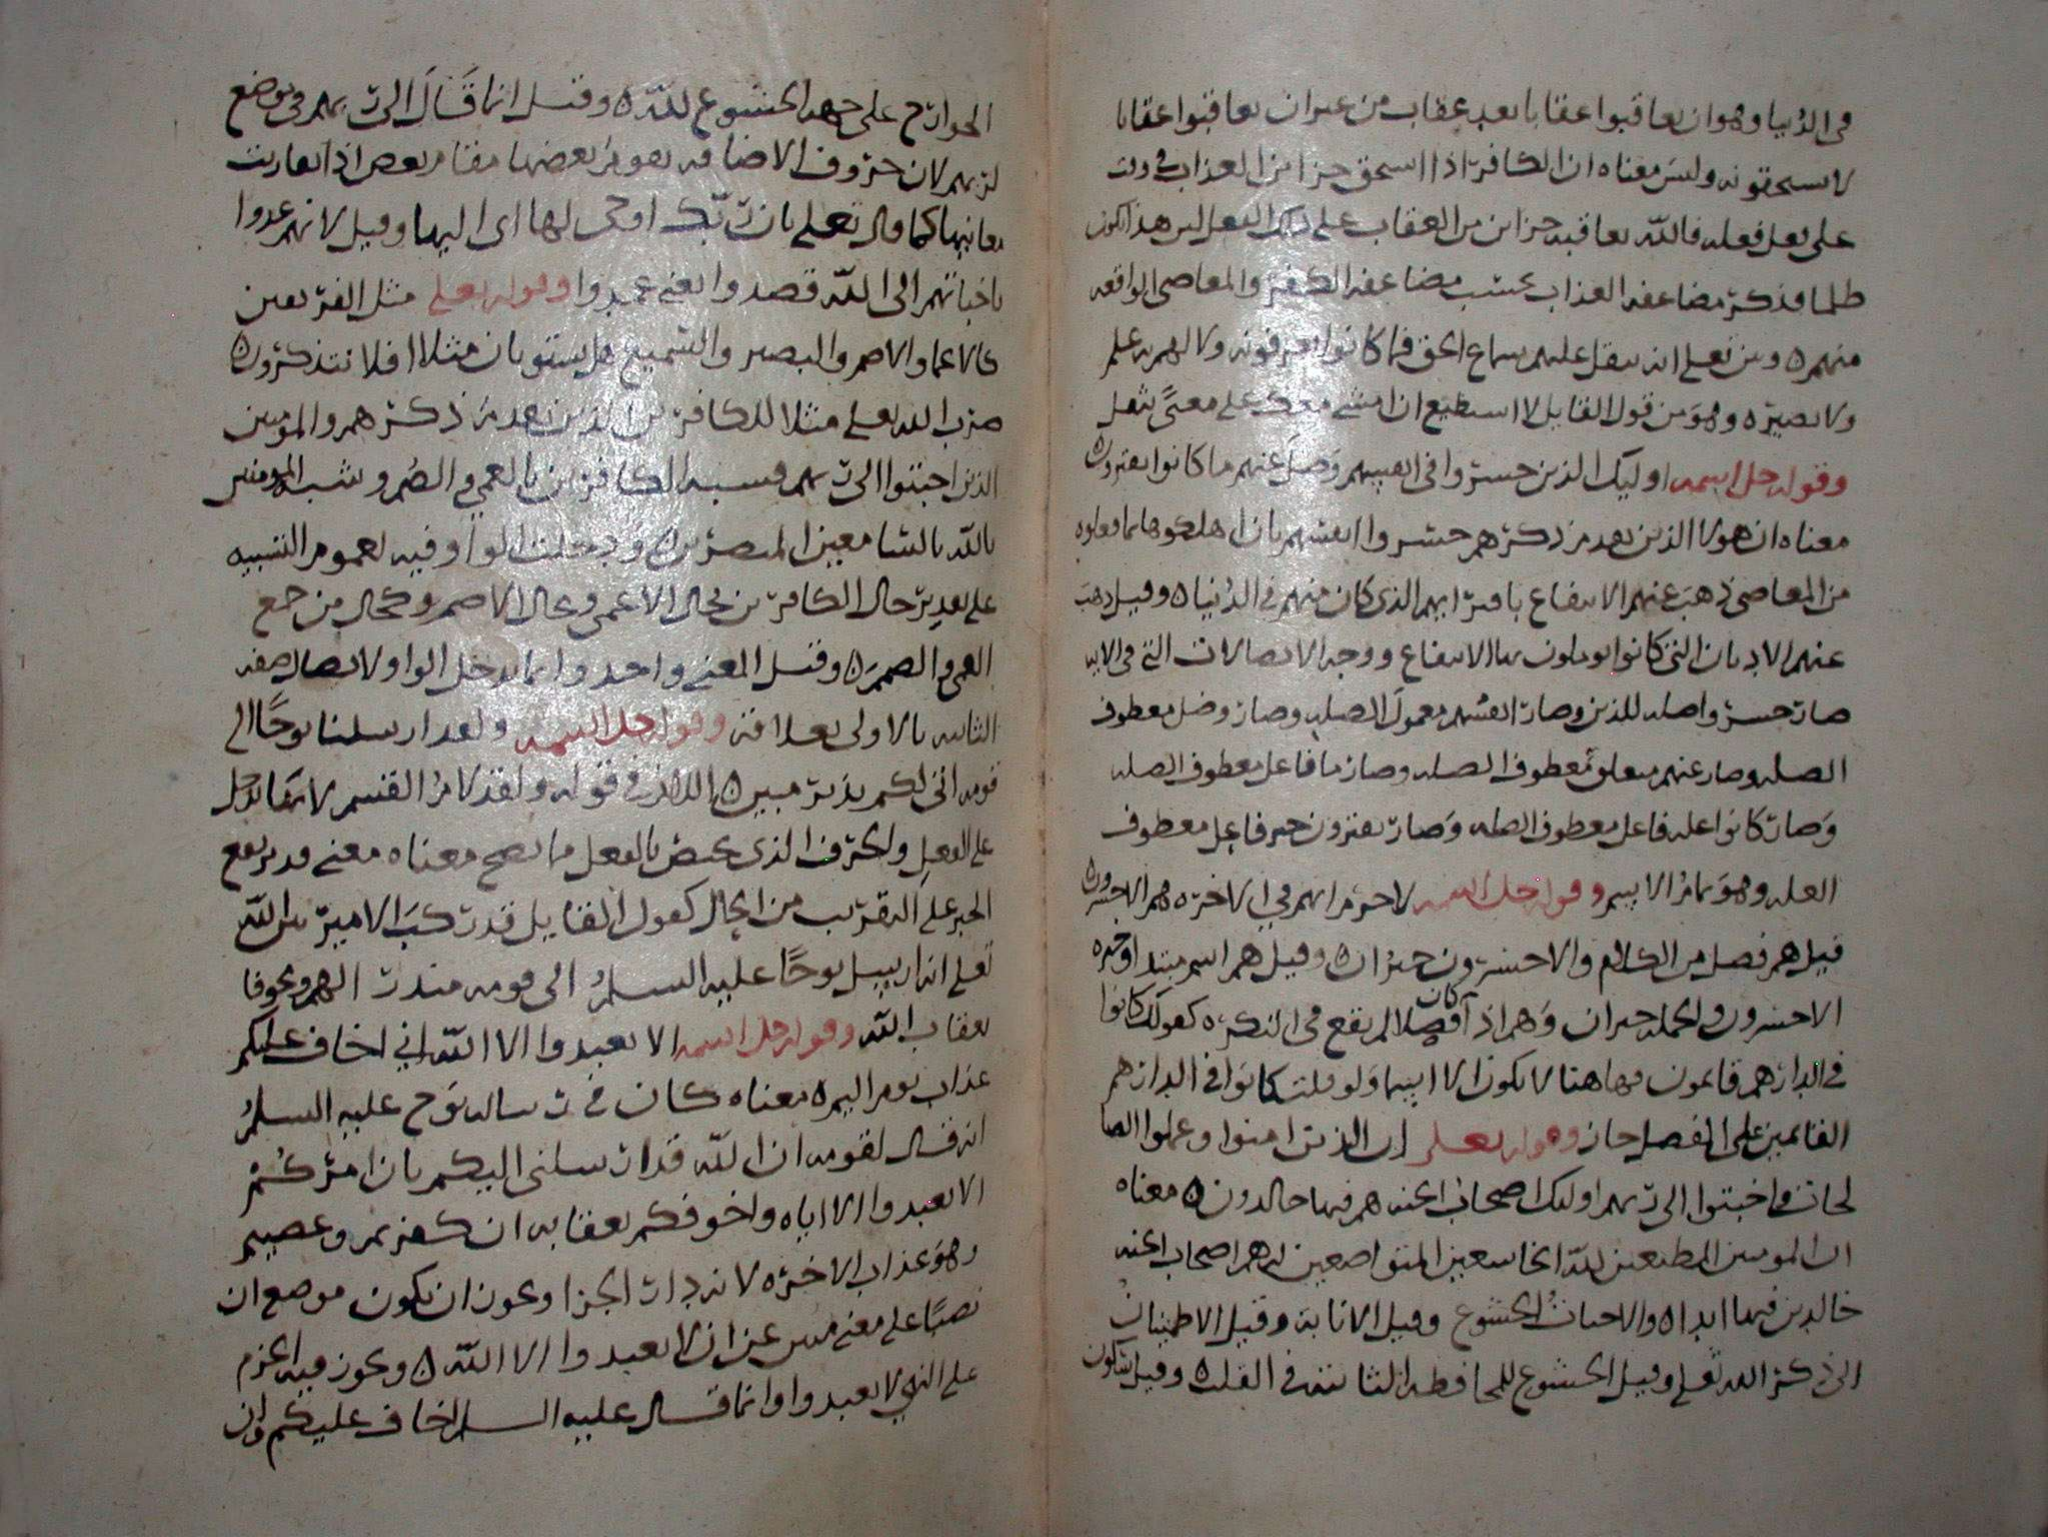 في الدنيا وهو ان يعاقبوا عقابا بعد عقاب من غير ان يعاقبوا عقابا
لا يستحقونه وليس معناه ان الكافر اذا استحق جزا من العذاب في وقت
على فعل فعله فالله يعاقبه جزاين من العقاب على ذلك الفعل ليس هذا لكون
ظلما فذكر مضاعفه العذاب بحسب مضاعفه الكفر والمعاصي الواقعه
منهم ه وبين تعلى انه يثقل عليهم سماع الحق فما كانوا يعرفونه ولا لهم به علم
ولا بصيره وهو من قول القايل لا استطيع ان امشي معك على معنى يثقل
وقوله جل اسمه اوليك الذين خسروا انفسهم وضل عنهم ما كانوا يفترون
معناه ان هولا الذين تقدم ذكرهم خسروا انفسهم بان اهلكوها بما فعلوه
من المعاصي ذهب عنهم الانتفاع بافترايهم الذي كان منهم في الدنيا ه وقيل ذهب
عنهم الاديان التي كانوا يوملون بها الانتفاع ووجه الاتصالات التي في الايه
صار خسروا صله للذين وصار انفسهم معمول الصله وصار وضل معطوف
الصله وصار عنهم متعلق معطوف الصله وصار ما فاعل معطوف الصله
وصار كانوا صله فاعل معطوف الصله وصار يفترون خبر فاعل معطوف
الصله وهو تمام الاسم وقوله جل اسمه لا جرم انهم في الاخره هم الاخسرون
قيل هم فصل من الكلام والاخسرون خبر ان وقيل هم اسم مبتدا وخبره
الاخسرون والجمله خبر ان وهم اذا كان فصلا لم يقع في النكره كقولك كانوا
في الدار هم قايمون فهاهنا لا يكون الا اسما ولو قلت كانوا في الدار هم
القايمين على الفصل جاز وقوله تعلى ان الذين امنوا وعملوا الصا
لحات واخبتوا الى ربهم اوليك اصحاب الجنه هم فيها خالدون ه معناه
ان المومنين المطيعين لله الخاشعين المتواضعين له هم اصحاب الجنه
خالدين فيها ابدا ه والاخبات الخشوع وقيل الانابه وقيل الاطمينان
الى ذكر الله تعلى وقيل الخشوع للمخافه الثابته في القلب ه وقيل سكون
الجوارح على جهه الخشوع لله ه وقيل انما قال الى ربهم في موضع
لربهم لان حروف الاضافه يقوم بعضها مقام بعض اذا تقاربت
معانيها كما قال تعلى بان ربك اوحى لها اي اليها وقيل لانهم عمدوا
باخباتهم الى الله قصدوا يعني عمدوا وقوله تعلى مثل الفريقين
كالاعما والاصم والبصير والسميع هل يستويان مثلا افلا تتذكرون
ضرب الله تعلى مثلا للكافرين الذين تقدم ذكرهم والمومنين
الذين اخبتوا الى ربهم فشبه الكافرين بالعمي والصم وشبه المومنين
بالله بالسامعين المبصرين ه ودخلت الواو فيه لعموم التشبيه
على تقدير حال الكافرين كحال الاعمى وكحال الاصم وكحال من جمع
العمى والصمم ه وقيل المعنى واحد وانما دخل الواو لاتصال صفه
الثانيه بالاولى بعلاقه وقوله جل اسمه ولقد ارسلنا نوحا الى
قومه اني لكم نذير مبين ه اللام في قوله ولقد لام القسم لانها تدخل
على الفعل والحرف الذي يختص بالفعل مما يصح معناه معنى قد توقع
الخبر على التقريب من الحال كقول القايل قد ركب الامير بين الله
تعلى انه ارسل نوحا عليه السلم الى قومه منذرا لهم ومخوفا
بعقاب الله وقوله جل اسمه الا تعبدوا الا الله اني اخاف عليكم
عذاب يوم اليم ه معناه كان في رساله نوح عليه السلم
انه قال لقومه ان الله قد ارسلني اليكم بان امركم
الا تعبدوا الا اياه واخوفكم بعقابه ان كفرتم وعصيتم
وهو عذاب الاخره لانه دار الجزا ويجوز ان يكون موضع ان
نصبا على معنى مبين عن ان لا تعبدوا الا الله ه ويجوز فيه الجزم
على النهي لا تعبدوا وانما قال عليه السلم اخاف عليكم وان